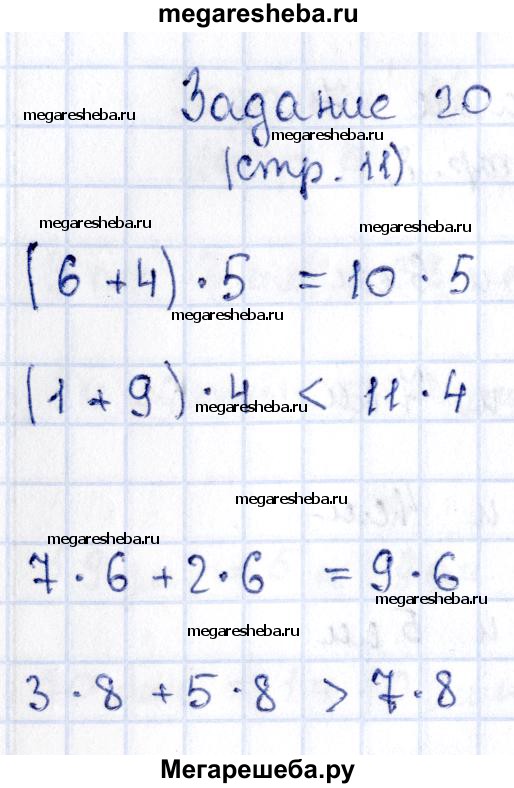 megaresheba.ru
Задание 20
megaresheba.ru
megaresheba.ru
(стр. 11)
megaresheba.ru
megaresheba.ru
(6 + 4) · 5 = 10 · 5
megaresheba.ru
(1 + 9) · 4 < 11 · 4
megaresheba.ru
megaresheba.ru
megaresheba.ru
7 · 6 + 2 · 6 = 9 · 6
megaresheba.ru
megaresheba.ru
3 · 8 + 5 · 8 > 7 · 8
Мегарешеба.ру